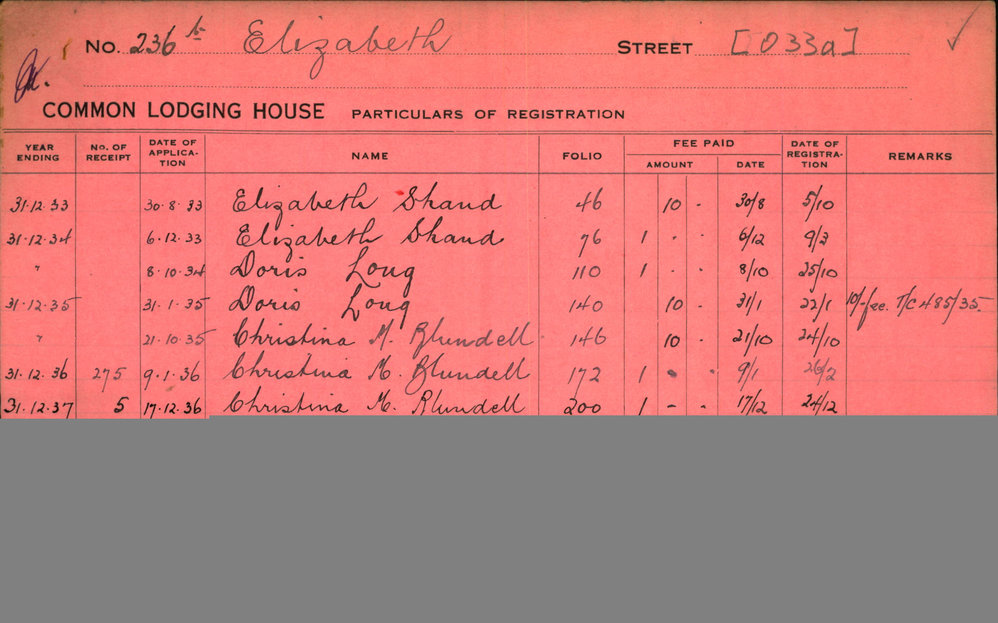 No. 236 b Elizabeth STREET [033a]
COMMON LODGING HOUSE PARTICULARS OF REGISTRATION
YEAR ENDING No. OF RECEIPT DATE OF APPLICA-TION NAME FOLIO FEE PAID AMOUNT DATE DATE OF REGISTRA-TION REMARKS
31.12.33 30.8.33 Elizabeth Shand 46 10 - 30/8 5/10
31.12.34 6.12.33 Elizabeth Shand 76 1 . . 6/12 9/3
" 8.10.34 Doris Long 110 1 . . 8/10 25/10
31.12.35 31.1.35 Doris Long 140 10 - 31/1 22/1 10/- fee. T/C 485/35.
" 21.10.35 Christina M. Blundell 146 10 - 21/10 24/10
31.12.36 275 9.1.36 Christina M. Blundell 172 1 . . 9/1 26/2
31.12.37 5 17.12.36 Christina M. Blundell 200 1 - . 17/12 24/12